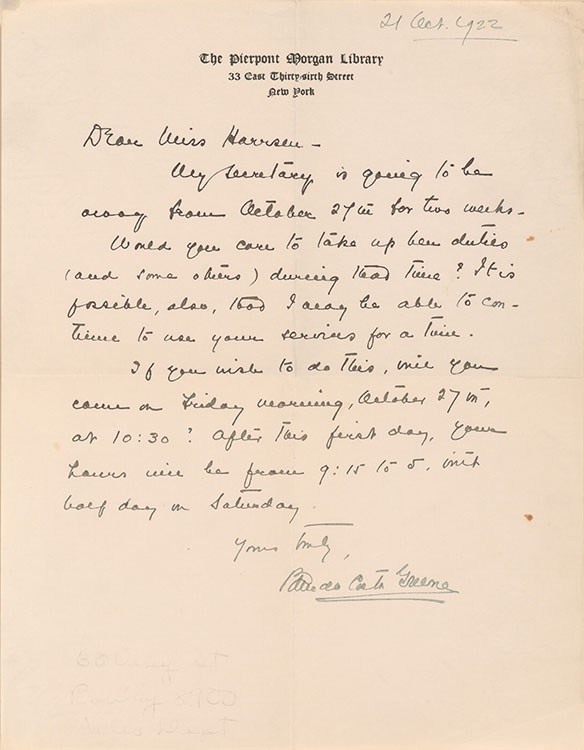 21 Oct. 1922
The Pierpont Morgan Library
33 East Thirty-sixth Street
New York
Dear Miss Harrsen -
My secretary is going to be
away from October 27th for two weeks -
Would you care to take up her duties
(and some others) during that time? It is
possible, also, that I may be able to con-
tinue to use your services for a time.
If you wish to do this, will you
come on Friday morning, October 27th,
at 10:30? After this first day, your
hours will be from 9:15 to 5, with
half day on Saturday.
Yours truly,
Belle da Costa Greene
St
Dept